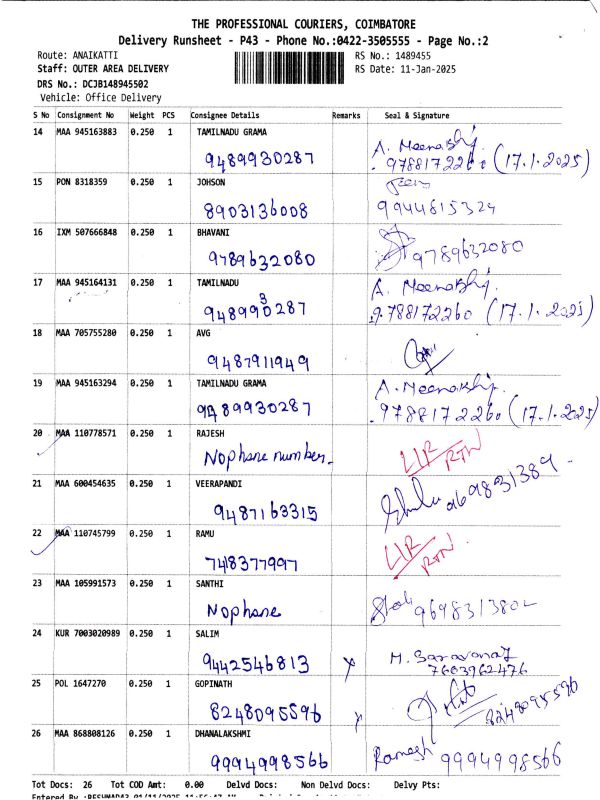 THE PROFESSIONAL COURIERS, COIMBATORE
Delivery Runsheet - P43 - Phone No.:0422-3505555 - Page No.:2
Route: ANAIKATTI RS No.: 1489455
Staff: OUTER AREA DELIVERY RS Date: 11-Jan-2025
DRS No.: DCJB148945502
Vehicle: Office Delivery
S No Consignment No Weight PCS Consignee Details Remarks Seal & Signature
14 MAA 945163883 0.250 1 TAMILNADU GRAMA A. Meenakshi
9489930287 9788172260 (17.1.2025)
15 PON 8318359 0.250 1 JOHSON
8903136008 9944815324
16 IXM 507666848 0.250 1 BHAVANI
9789632080 9789632080
17 MAA 945164131 0.250 1 TAMILNADU A. Meenakshi
9489930287 9788172260 (17.1.2025)
18 MAA 705755280 0.250 1 AVG
9487911949
19 MAA 945163294 0.250 1 TAMILNADU GRAMA A. Meenakshi
9489930287 9788172260 (17.1.2025)
20 MAA 110778571 0.250 1 RAJESH
Nophone number. LIR/RTN
21 MAA 600454635 0.250 1 VEERAPANDI
9487163315
22 MAA 110745799 0.250 1 RAMU
7418377997 LIR/RTN
23 MAA 105991573 0.250 1 SANTHI
Nophone 9698313802
24 KUR 7003020989 0.250 1 SALIM M. Saravanan
9442546813 x 7603962476
25 POL 1647270 0.250 1 GOPINATH
8248095596 x 8248095596
26 MAA 868808126 0.250 1 DHANALAKSHMI
9994998566 Ramesh 9994998566
Tot Docs: 26 Tot COD Amt: 0.00 Delvd Docs: Non Delvd Docs: Delvy Pts: